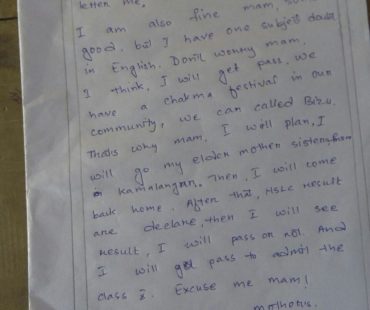 letter me.
I am also fine mam,
good, but I have one subject doubt
in English. Don't worry mam.
I think, I will get pass, we
have a chakma festival in our
community, we can called Bizu.
Thats why mam, I will plan, I
will go my elder mother sister,
Kamalangan. Then, I will come
back home. After that, HSLC Result
are declare, then I will see
result, I will pass or not. And
I will get pass to admit the
class
Excuse me mam!